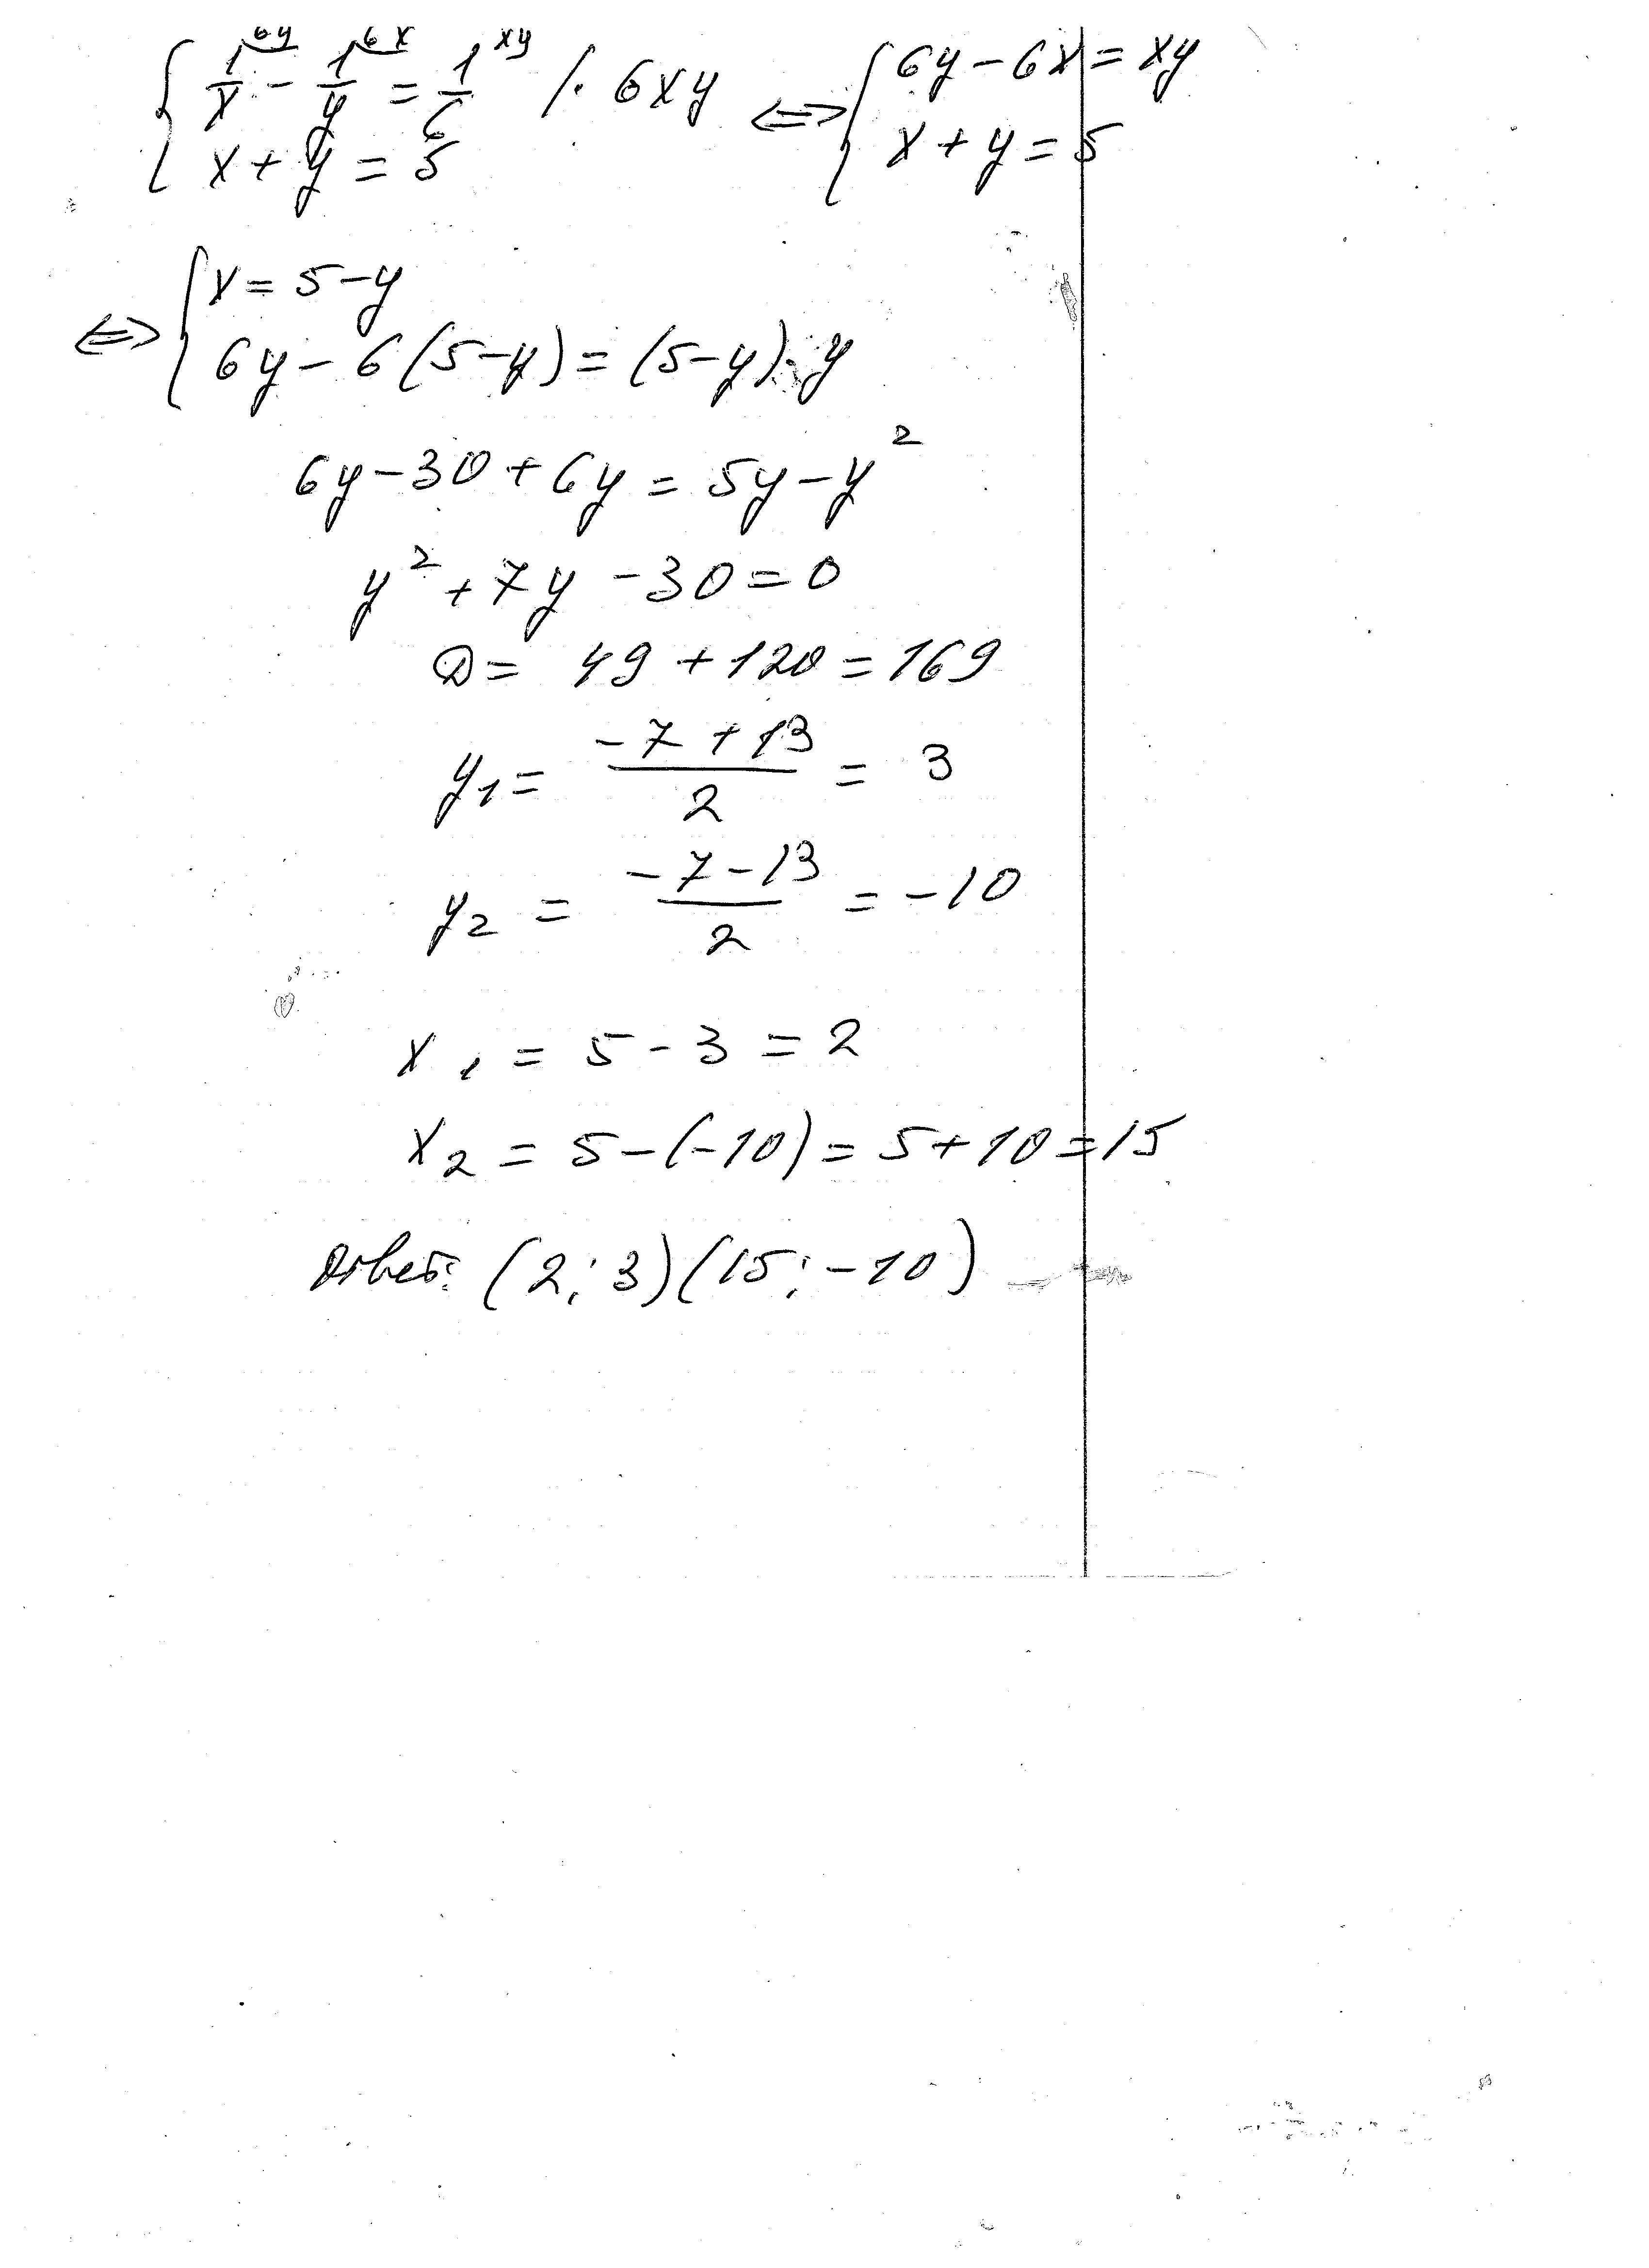 { 1/x^{6y} - 1/y^{6x} = 1/6^{xy} /· 6xy <=> { 6y - 6x = xy
x + y = 5 x + y = 5
<=> { x = 5 - y
6y - 6(5-y) = (5-y)·y
6y - 30 + 6y = 5y - y²
y² + 7y - 30 = 0
D = 49 + 120 = 169
y₁ = (-7 + 13)/2 = 3
y₂ = (-7 - 13)/2 = -10
x₁ = 5 - 3 = 2
x₂ = 5 - (-10) = 5 + 10 = 15
Ответ: (2; 3) (15; -10)